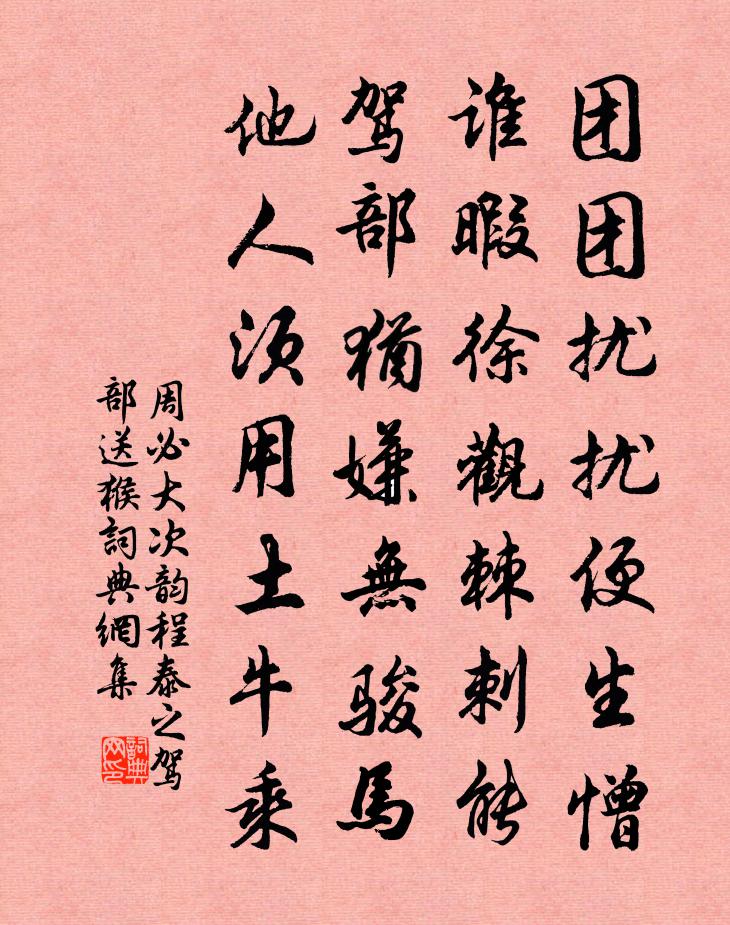 团团扰扰便生憎
谁暇徐觀棘刺能
驾部猶嫌無骏馬
他人须用土牛乘
周必大次韵程泰之驾
部送猴詞典網集
詞典
网印